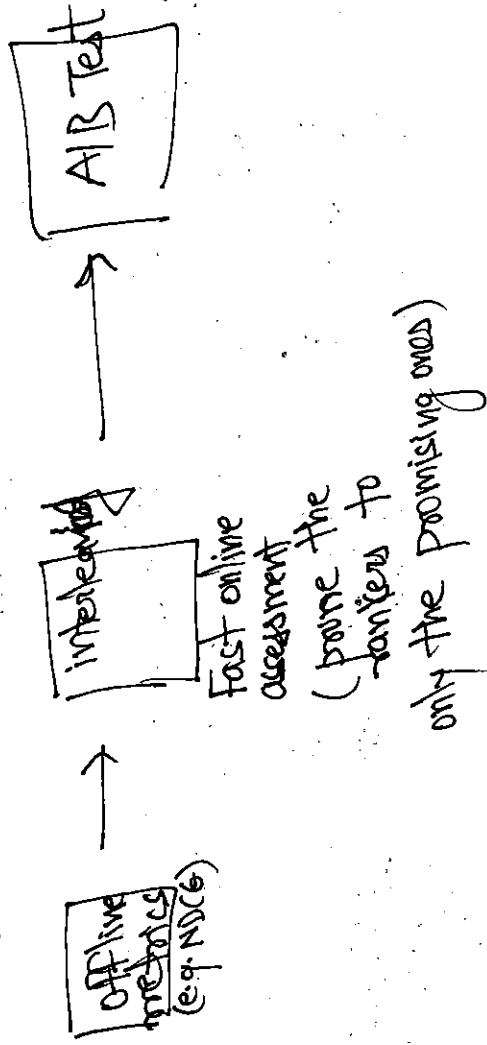 offline
metrics
(e.g. NDCG)
interleaving
Fast online
assessment
(prune the
rankers to
only the promising ones)
A/B Test